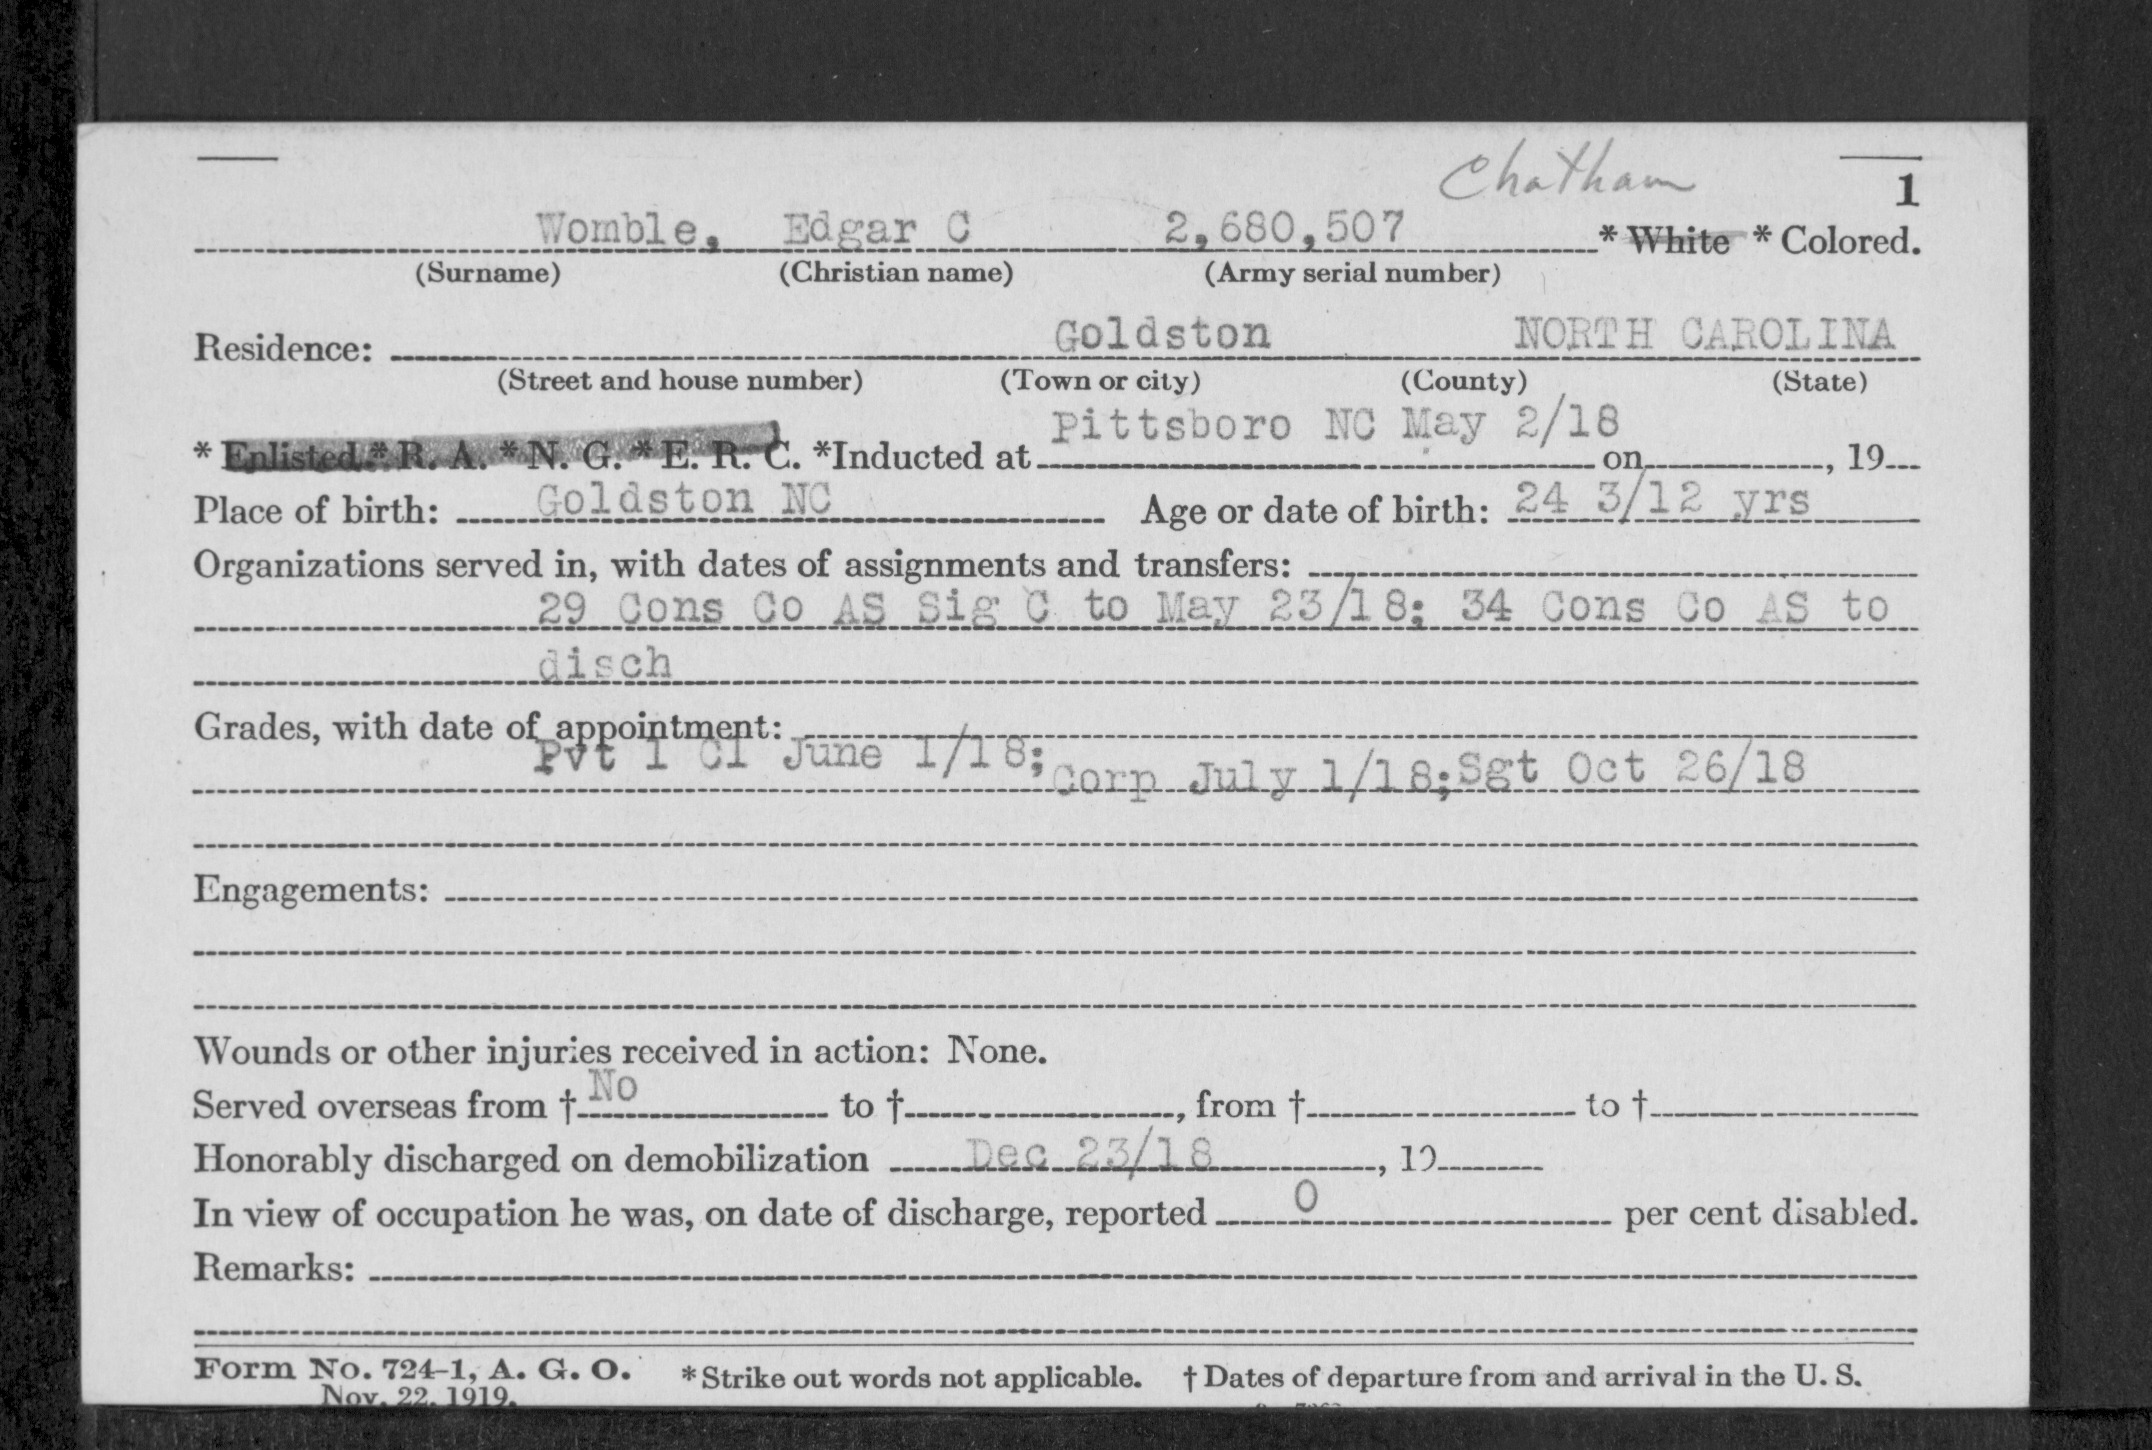 Chatham
1
Womble, Edgar C 2,680,507 * White * Colored.
(Surname) (Christian name) (Army serial number)
Goldston NORTH CAROLINA
Residence:
(Street and house number) (Town or city) (County) (State)
Pittsboro NC May 2/18
* Enlisted * R. A. * N. G. * E. R. C. *Inducted at on , 19
Place of birth: Goldston NC Age or date of birth: 24 3/12 yrs
Organizations served in, with dates of assignments and transfers:
29 Cons Co AS Sig C to May 23/18; 34 Cons Co AS to
disch
Grades, with date of appointment:
Pvt 1 Cl June 1/18; Corp July 1/18; Sgt Oct 26/18
Engagements:
Wounds or other injuries received in action: None.
Served overseas from † No to † , from † to †
Honorably discharged on demobilization Dec 23/18 , 19
In view of occupation he was, on date of discharge, reported 0 per cent disabled.
Remarks:
Form No. 724-1, A. G. O. * Strike out words not applicable. † Dates of departure from and arrival in the U. S.
Nov. 22, 1919.